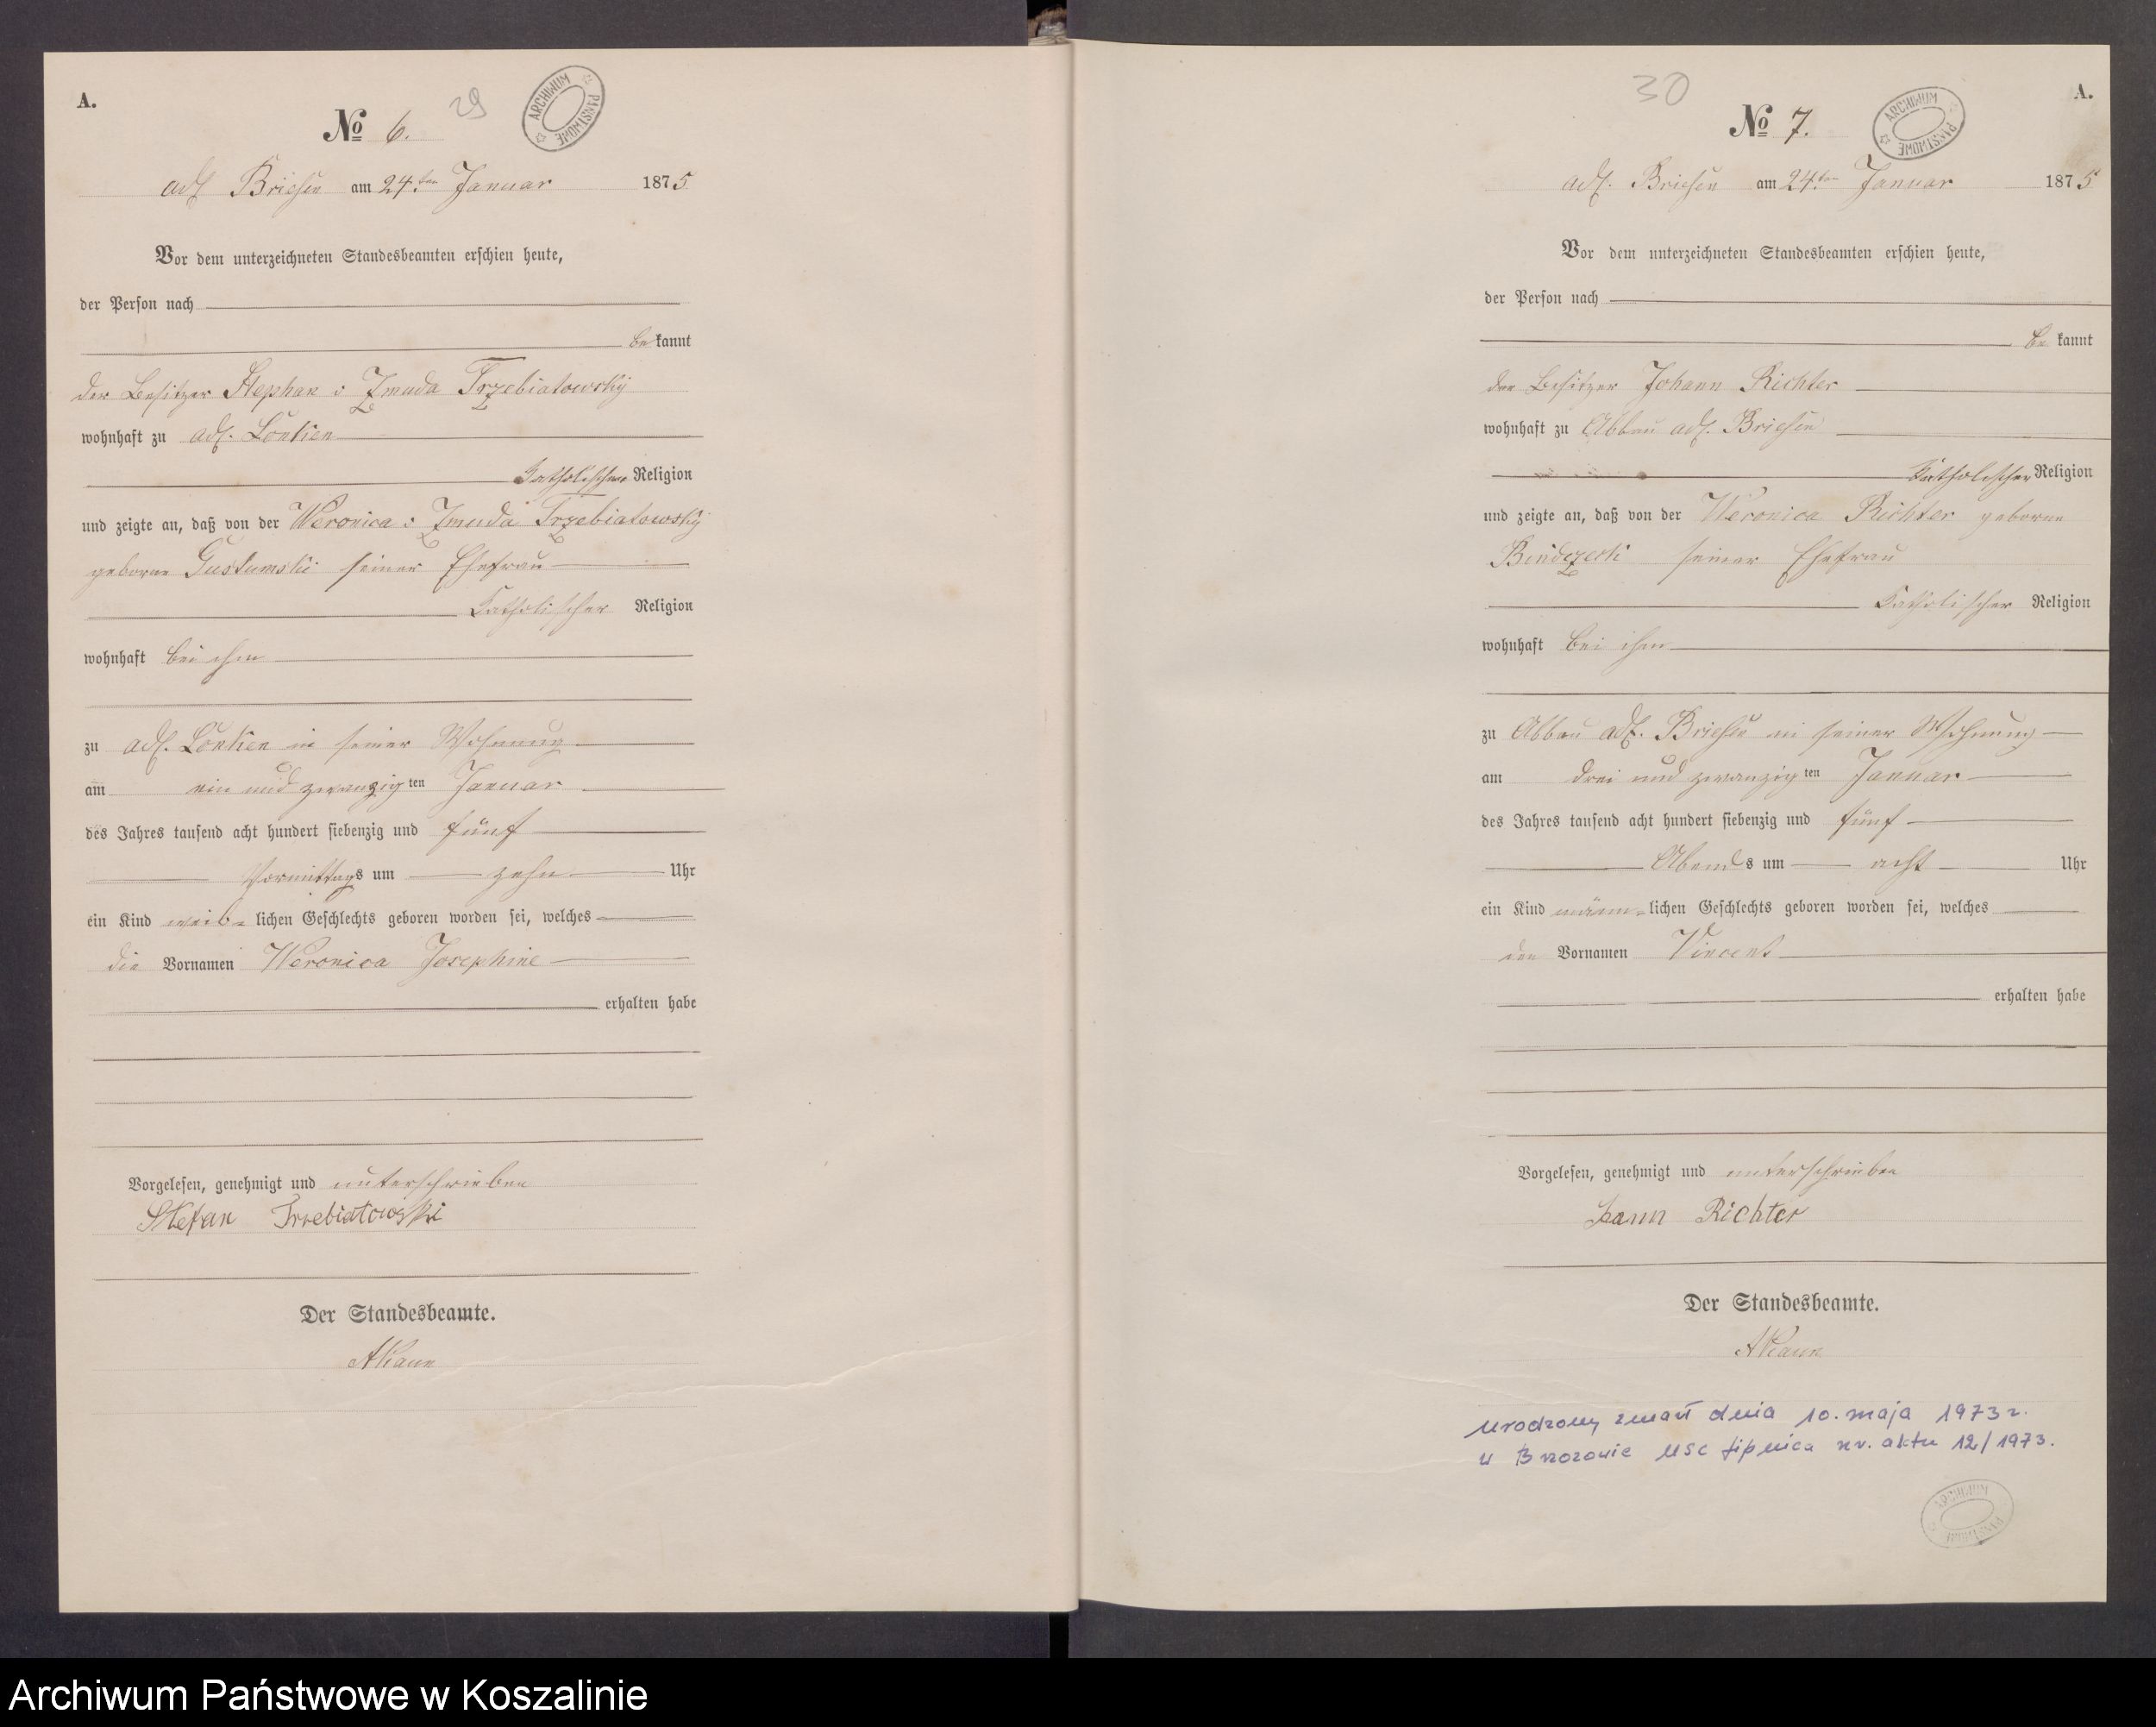 A.
No 6.
29
ARCHIWUM PAŃSTWOWE
adl Briesen am 24.ten Januar 1875
Vor dem unterzeichneten Standesbeamten erschien heute,
der Person nach
bekannt
der Besitzer Stephan v Zmuda Trzebiatowsky
wohnhaft zu adl. Lonken
Katholischer Religion
und zeigte an, daß von der Weronica v Zmuda Trzebiatowsky
geborne Gustumski seiner Ehefrau
Katholischer Religion
wohnhaft bei ihm
zu adl. Lonken in seiner Wohnung
am ein und zwanzigten Januar
des Jahres tausend acht hundert siebenzig und fünf
Vormittags um zehn Uhr
ein Kind weib=lichen Geschlechts geboren worden sei, welches
die Vornamen Weronica Josephine
erhalten habe
Vorgelesen, genehmigt und unterschrieben
Stefan Trzebiatowski
Der Standesbeamte.
30
A.
No 7.
ARCHIWUM PAŃSTWOWE
adl. Briesen am 24.ten Januar 1875
Vor dem unterzeichneten Standesbeamten erschien heute,
der Person nach
bekannt
der Besitzer Johann Richter
wohnhaft zu Abbau adl. Briesen
Katholischer Religion
und zeigte an, daß von der Weronica Richter geborne
seiner Ehefrau
Katholischer Religion
wohnhaft bei ihm
zu Abbau adl. Briesen in seiner Wohnung
am drei und zwanzigten Januar
des Jahres tausend acht hundert siebenzig und fünf
Abends um acht Uhr
ein Kind männ=lichen Geschlechts geboren worden sei, welches
den Vornamen Vincent
erhalten habe
Vorgelesen, genehmigt und unterschrieben
Richter
Der Standesbeamte.
urodzony zmarł dnia 10. maja 1973 r.
w Brzozowie USC Lipnica nr. aktu 12/1973.
ARCHIWUM PAŃSTWOWE
Archiwum Państwowe w Koszalinie